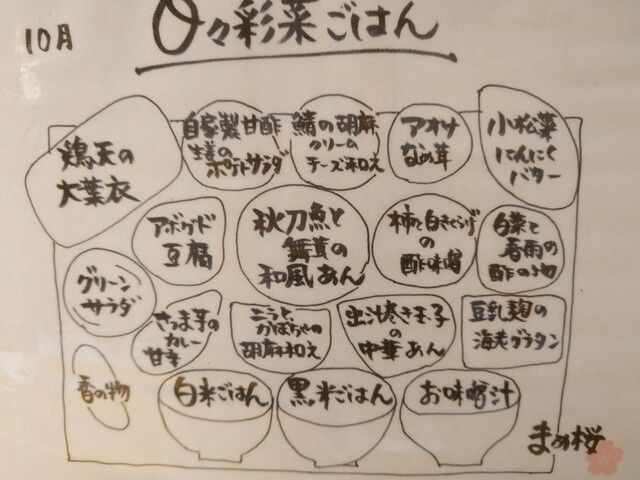 10月
日々彩菜ごはん
鶏天の
大葉衣
自家製甘酢
生姜の
ポテトサラダ
鯖の胡麻
クリーム
チーズ和え
アオサ
なめ茸
小松菜
にんにく
バター
アボカド
豆腐
秋刀魚と
舞茸の
和風あん
柿と白きくらげ
の
酢味噌
白菜と
春雨の
酢の物
グリーン
サラダ
さつま芋の
カレー
甘辛
ニラと
かぼちゃの
胡麻和え
出汁巻き玉子
の
中華あん
豆乳麹の
海老グラタン
香の物
白米ごはん
黒米ごはん
お味噌汁
まめ桜